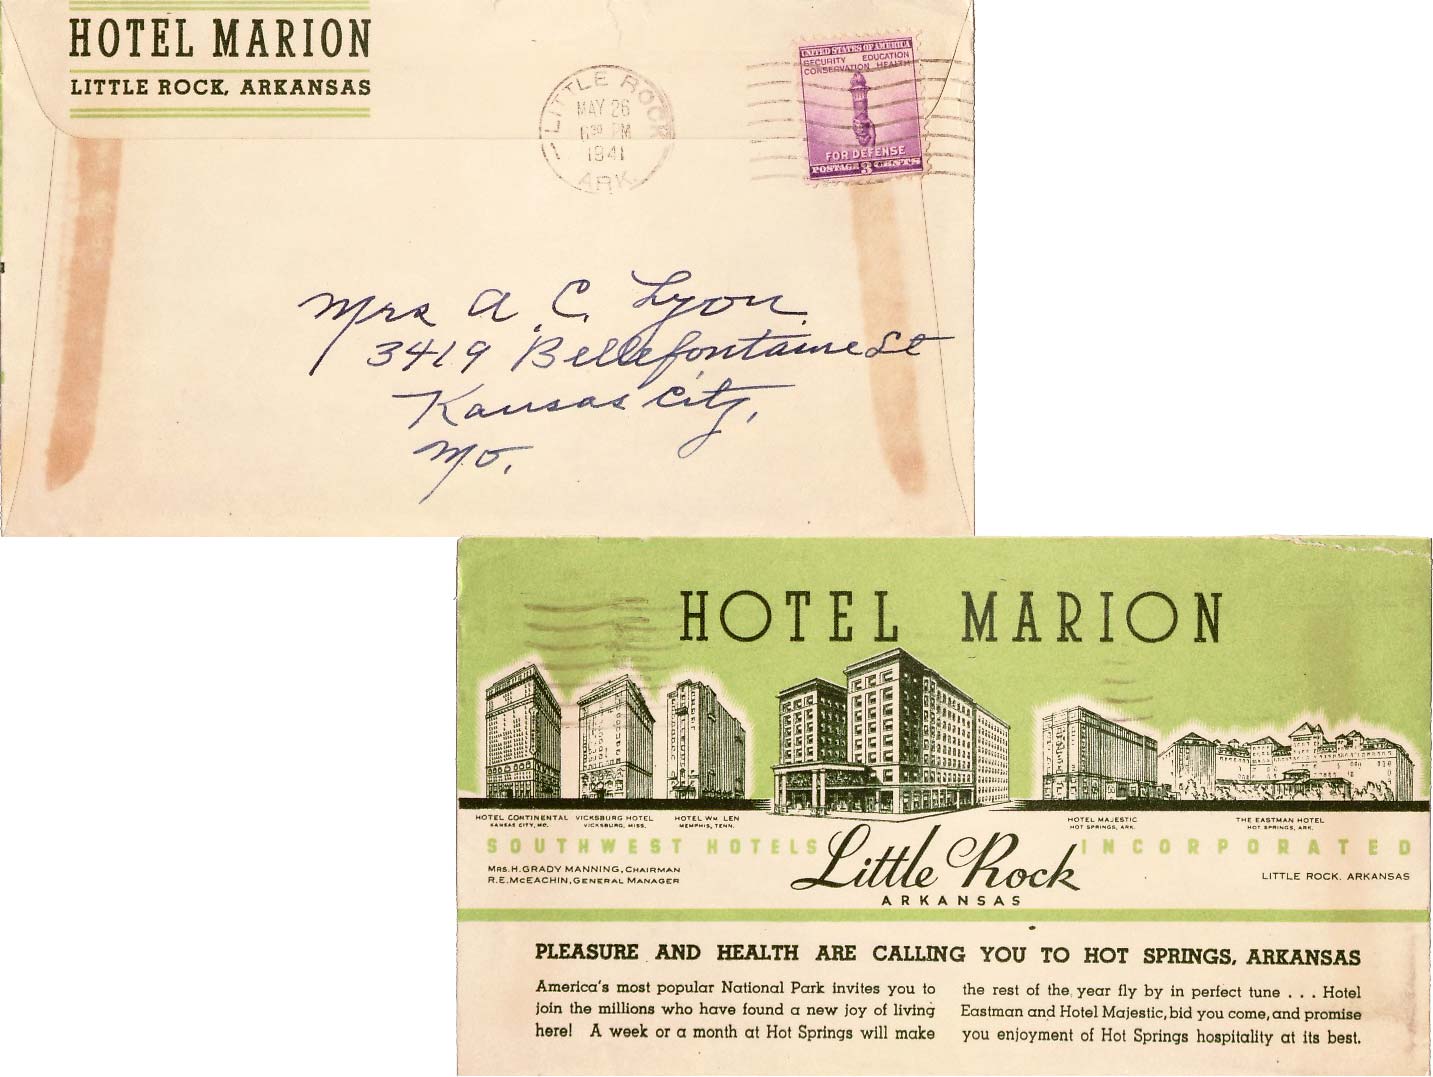 HOTEL MARION
LITTLE ROCK, ARKANSAS
LITTLE ROCK
MAY 26
11 30 PM
1941
ARK.
UNITED STATES OF AMERICA
SECURITY EDUCATION
CONSERVATION HEALTH
FOR DEFENSE
POSTAGE 3 CENTS
Mrs A. C. Lyon
3419 Bellefontaine St
Kansas City,
Mo.
HOTEL MARION
HOTEL CONTINENTAL
KANSAS CITY, MO.
VICKSBURG HOTEL
VICKSBURG, MISS.
HOTEL WM LEN
MEMPHIS, TENN.
HOTEL MAJESTIC
HOT SPRINGS, ARK.
THE EASTMAN HOTEL
HOT SPRINGS, ARK.
SOUTHWEST HOTELS INCORPORATED
MRS. H. GRADY MANNING, CHAIRMAN
R. E. MCEACHIN, GENERAL MANAGER
Little Rock
ARKANSAS
LITTLE ROCK, ARKANSAS
PLEASURE AND HEALTH ARE CALLING YOU TO HOT SPRINGS, ARKANSAS
America's most popular National Park invites you to
join the millions who have found a new joy of living
here! A week or a month at Hot Springs will make
the rest of the year fly by in perfect tune . . . Hotel
Eastman and Hotel Majestic, bid you come, and promise
you enjoyment of Hot Springs hospitality at its best.